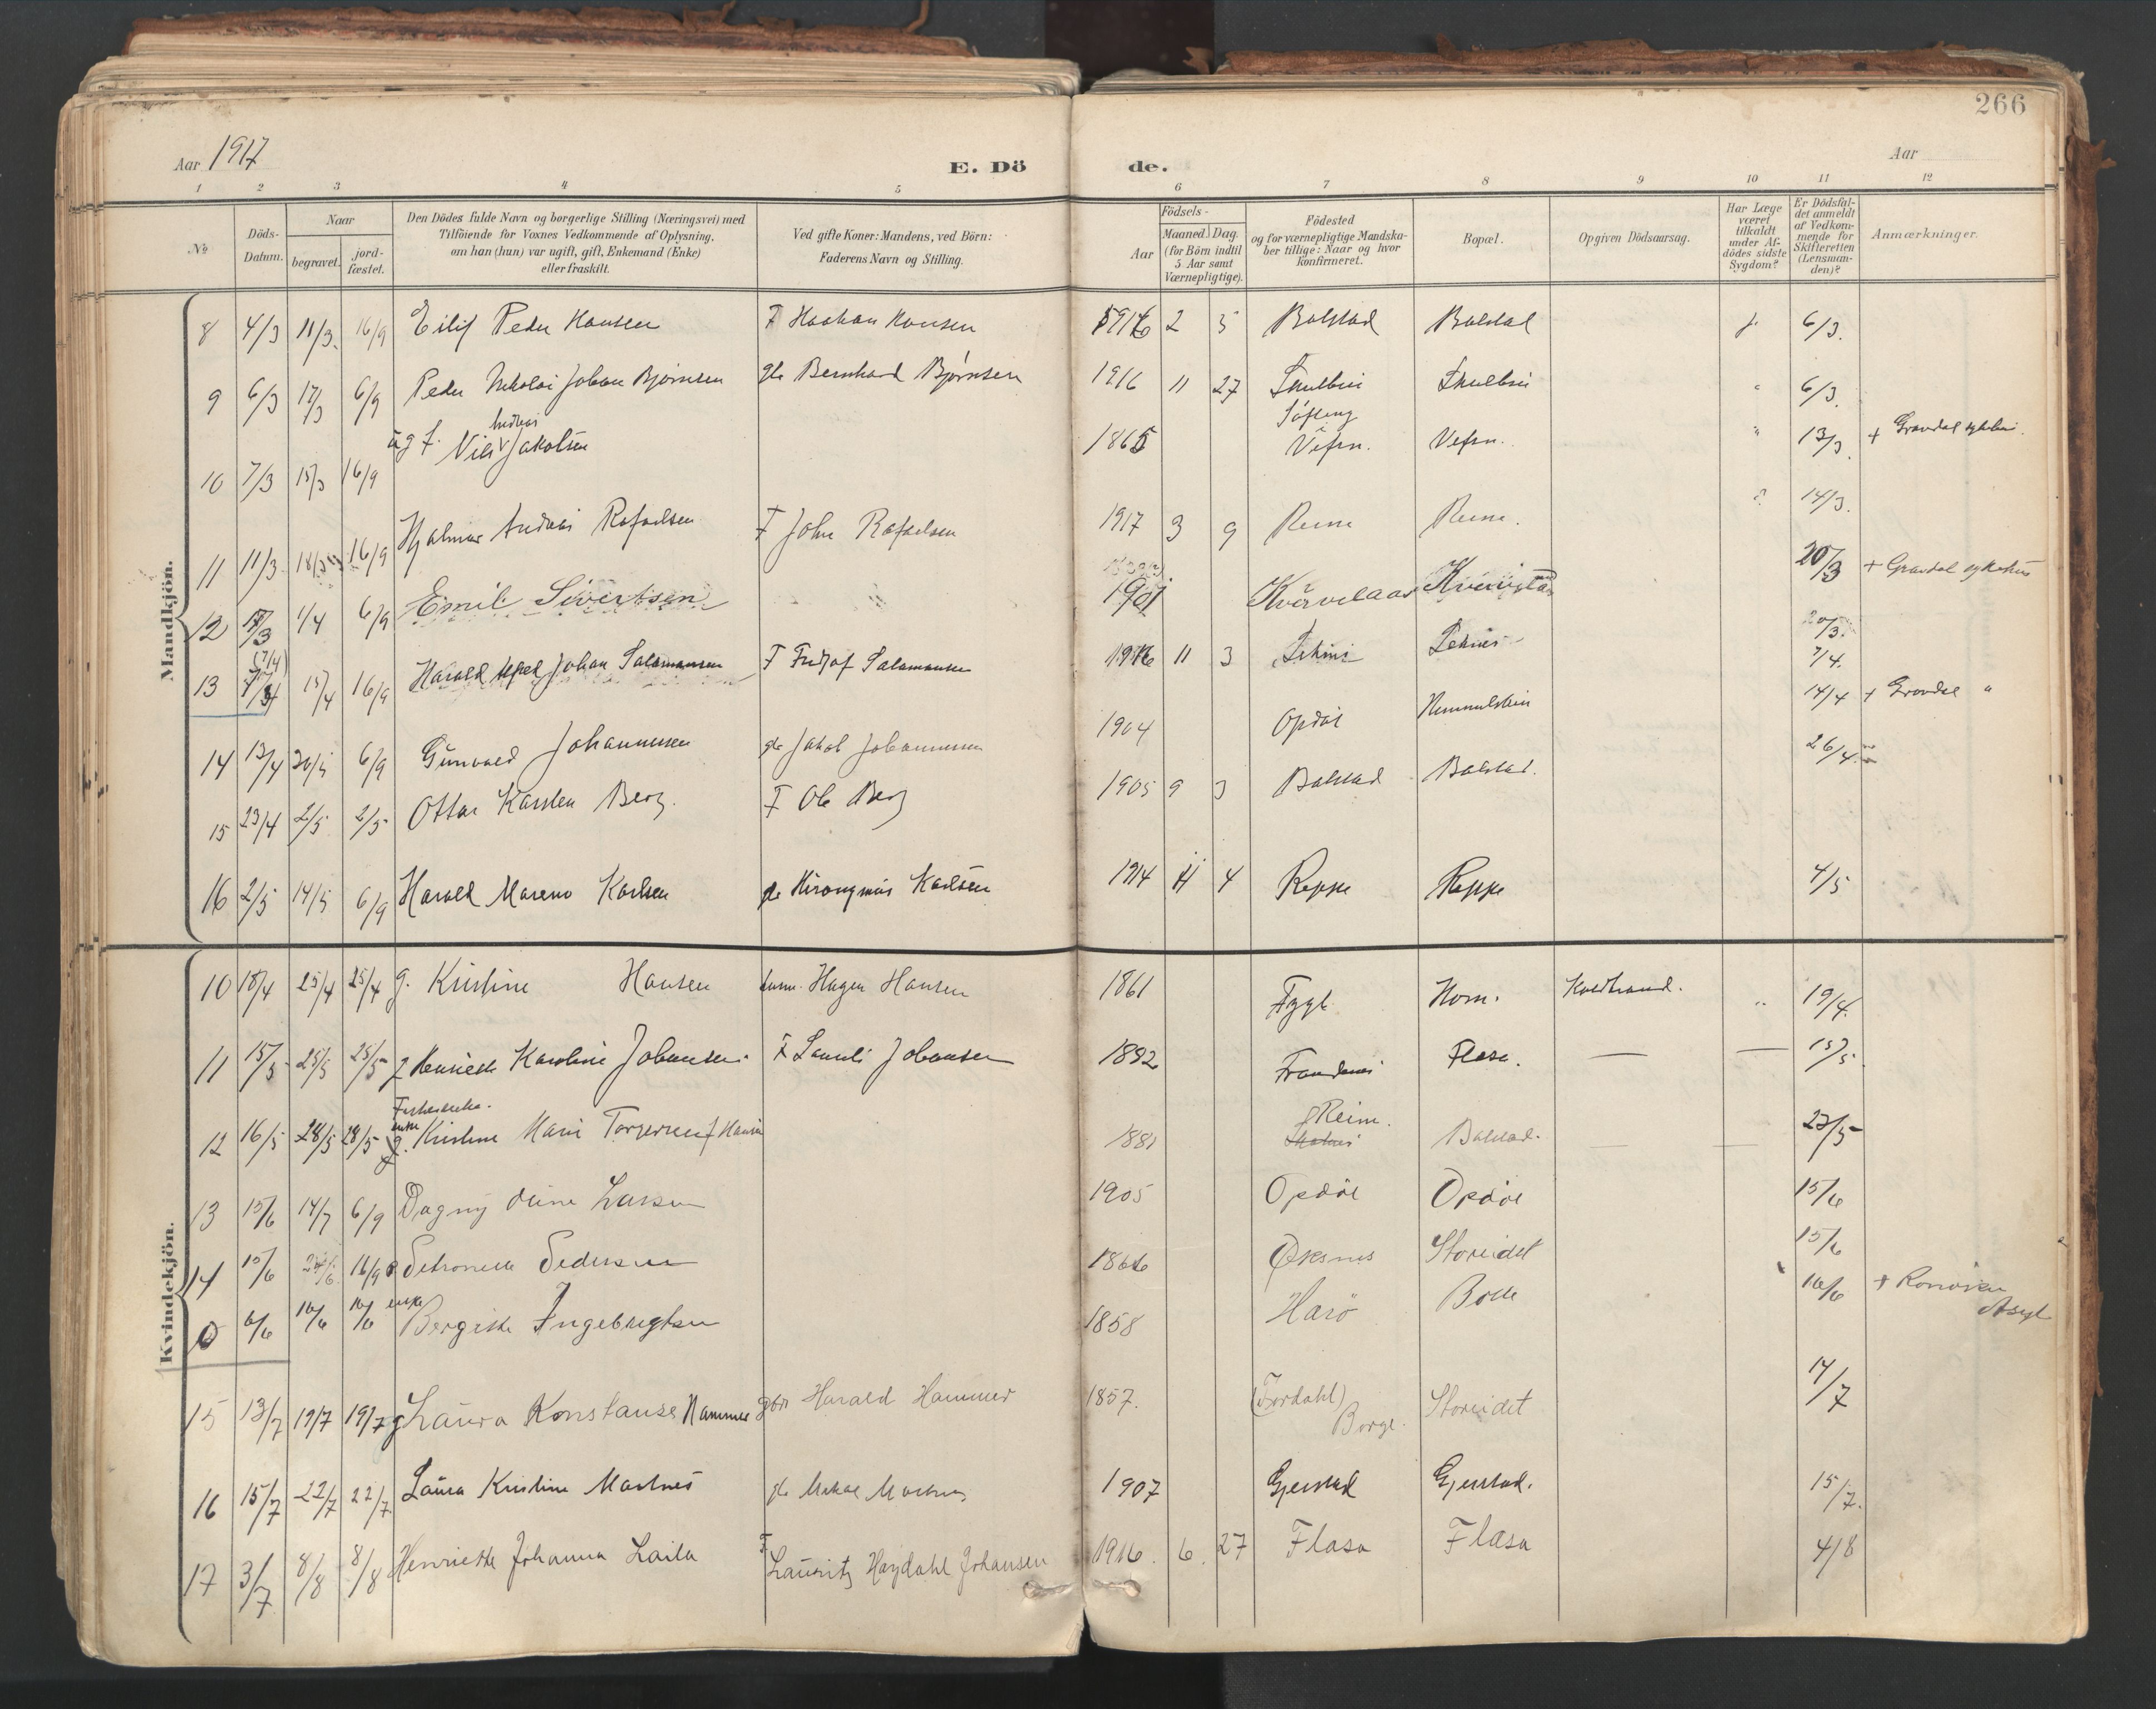 266
Aar 1917
E. Dö
de.
Aar
1 2 3 4 5 6 7 8 9 10 11 12
No
Döds-Datum.
Naar
begravet.
jord-fæstet.
Den Dödes fulde Navn og borgerlige Stilling (Næringsvei) med
Tilföiende for Voxnes Vedkommende af Oplysning,
om han (hun) var ugift, gift, Enkemand (Enke)
eller fraskilt.
Ved gifte Koner: Mandens, ved Börn:
Faderens Navn og Stilling.
Födsels-
Aar
Maaned. Dag.
(for Börn indtil
5 Aar samt
Værnepligtige).
Födested
og for værnepligtige Mandska-
ber tillige: Naar og hvor
konfirmeret.
Bopæl.
Opgiven Dödsaarsag.
Har Læge
været
tilkaldt
under Af-
dödes sidste
Sygdom?
Er Dödsfal-
det anmeldt
af Vedkom-
mende for
Skifteretten
(Lensman-
den)?
Anmærkninger.
Mandkjön.
8 4/3 11/3. 16/9 Eilif Peder Hansen F Haakan Hansen 1916 2 5 Balstad Balstad j. 6/3.
9 6/3 17/3 6/9 Peder Nikolai Johan Bjørnsen gbr Bernhard Bjørnsen 1916 11 27 6/3.
10 7/3 15/3 16/9 ug f. Nils Andreas Jakobsen 1865 Vefsn. Vefsn. " 13/3. + Gravdal
11 11/3 18/3 16/9 Hjalmar Andreas Rafaelsen F John Rafaelsen 1917 3 9 Reine Reine. 14/3.
12 17/3 1/4 6/9 Emil Sivertsen 1901 20/3 + Gravdal sykehus
13 15/4 16/9 Harald Johan Salamonsen F Fridjof Salamonsen 1916 11 3 Leknes Leknes 7/4.
14 13/4 20/5 6/9 Gunvald Johannessen gbr Jakob Johannessen 1904 Opdøl 14/4 + Gravdal "
15 23/4 2/5 2/5 Ottar Karsten Berg. F Ole Berg 1905 9 3 Balstad Balstad. 26/4.
16 2/5 14/5 6/9 Harald Mareno Karlsen Karlsen 1914 11 4 Reppe Reppe 4/5
Kvindekjön.
10 18/4 25/4 25/4 g. Kristine Hansen Hagen Hansen 1861 Fygle Horn. Koldbrand. " 19/4.
11 15/5 25/5 25/5 Karoline Johansen. F Johansen 1892 Flasa.
12 16/5 28/5 28/5 enke Kristine Marie Torgersen f Hansen 1881 Reine. Balstad. 23/5
13 15/6 14/7 6/9 Dagny Larsen 1905 Opdøl Opdøl 15/6
14 15/6 16/9 Petronelle Pedersen 1866 Øksnes Storeidet 15/6
0 6/6 10/6 10/6 enke Ingebrigtsen 1858 Harö Bolle 16/6 + Rønviken
Asyl
15 13/7 19/7 19/7 g Laura Konstanse Hammer gbr Harald Hammer 1857. (Fordahl)
Borge. Storeidet 14/7
16 15/7 22/7 22/7. Laura Kristine Martnes 1907 Gjerstad Gjerstad. 15/7.
17 3/7 8/8 8/8 Henriette Johanna Laila F
Lauritz Høydahl Johansen 1916. 6. 27 Flasa Flasa 4/8